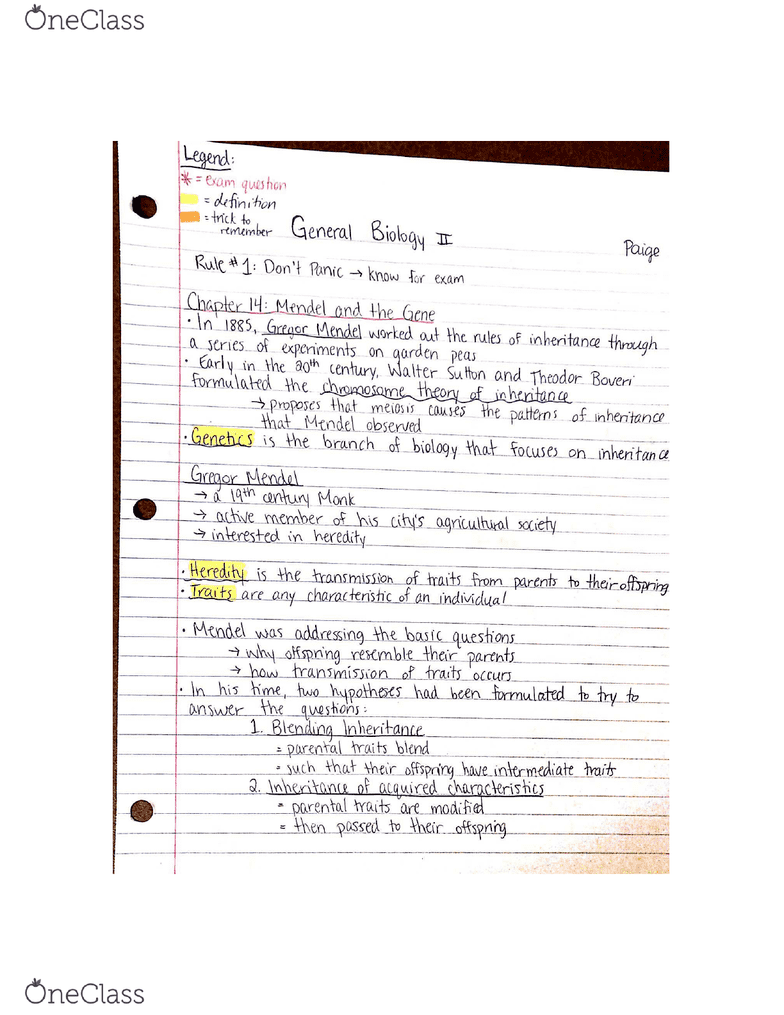 OneClass
Legend:
* = exam question
= definition
= trick to
remember
General Biology II
Paige
Rule #1: Don't Panic → know for exam
Chapter 14: Mendel and the Gene
• In 1885, Gregor Mendel worked out the rules of inheritance through
a series of experiments on garden peas
• Early in the 20th century, Walter Sutton and Theodor Boveri
formulated the chromosome theory of inheritance
→ proposes that meiosis causes the patterns of inheritance
that Mendel observed
• Genetics is the branch of biology that focuses on inheritance
Gregor Mendel
→ a 19th century Monk
→ active member of his city's agricultural society
→ interested in heredity
• Heredity is the transmission of traits from parents to their offspring
• Traits are any characteristic of an individual
• Mendel was addressing the basic questions
→ why offspring resemble their parents
→ how transmission of traits occurs
• In his time, two hypotheses had been formulated to try to
answer the questions:
1. Blending Inheritance
= parental traits blend
= such that their offspring have intermediate traits
2. Inheritance of acquired characteristics
= parental traits are modified
= then passed to their offspring
OneClass